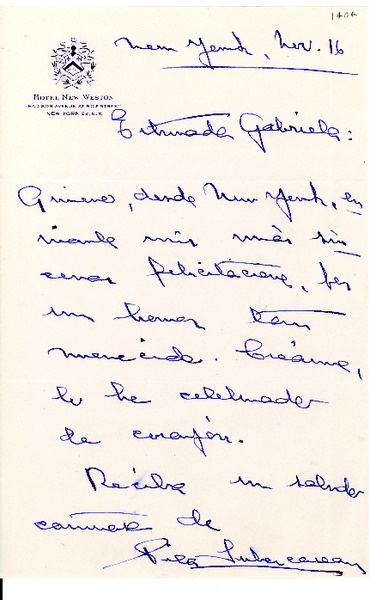 1404
New York, Nov. 16
HOTEL NEW WESTON
MADISON AVENUE AT 50TH STREET
NEW YORK 22, N.Y.
Estimada Gabriela:
Quiero, desde New York, en
viarle mis más sin
ceras felicitaciones, por
un honor tan
merecido. Créame,
lo he celebrado
de corazón.
Reciba un saludo
cariñoso de
Pilo Subercaseaux